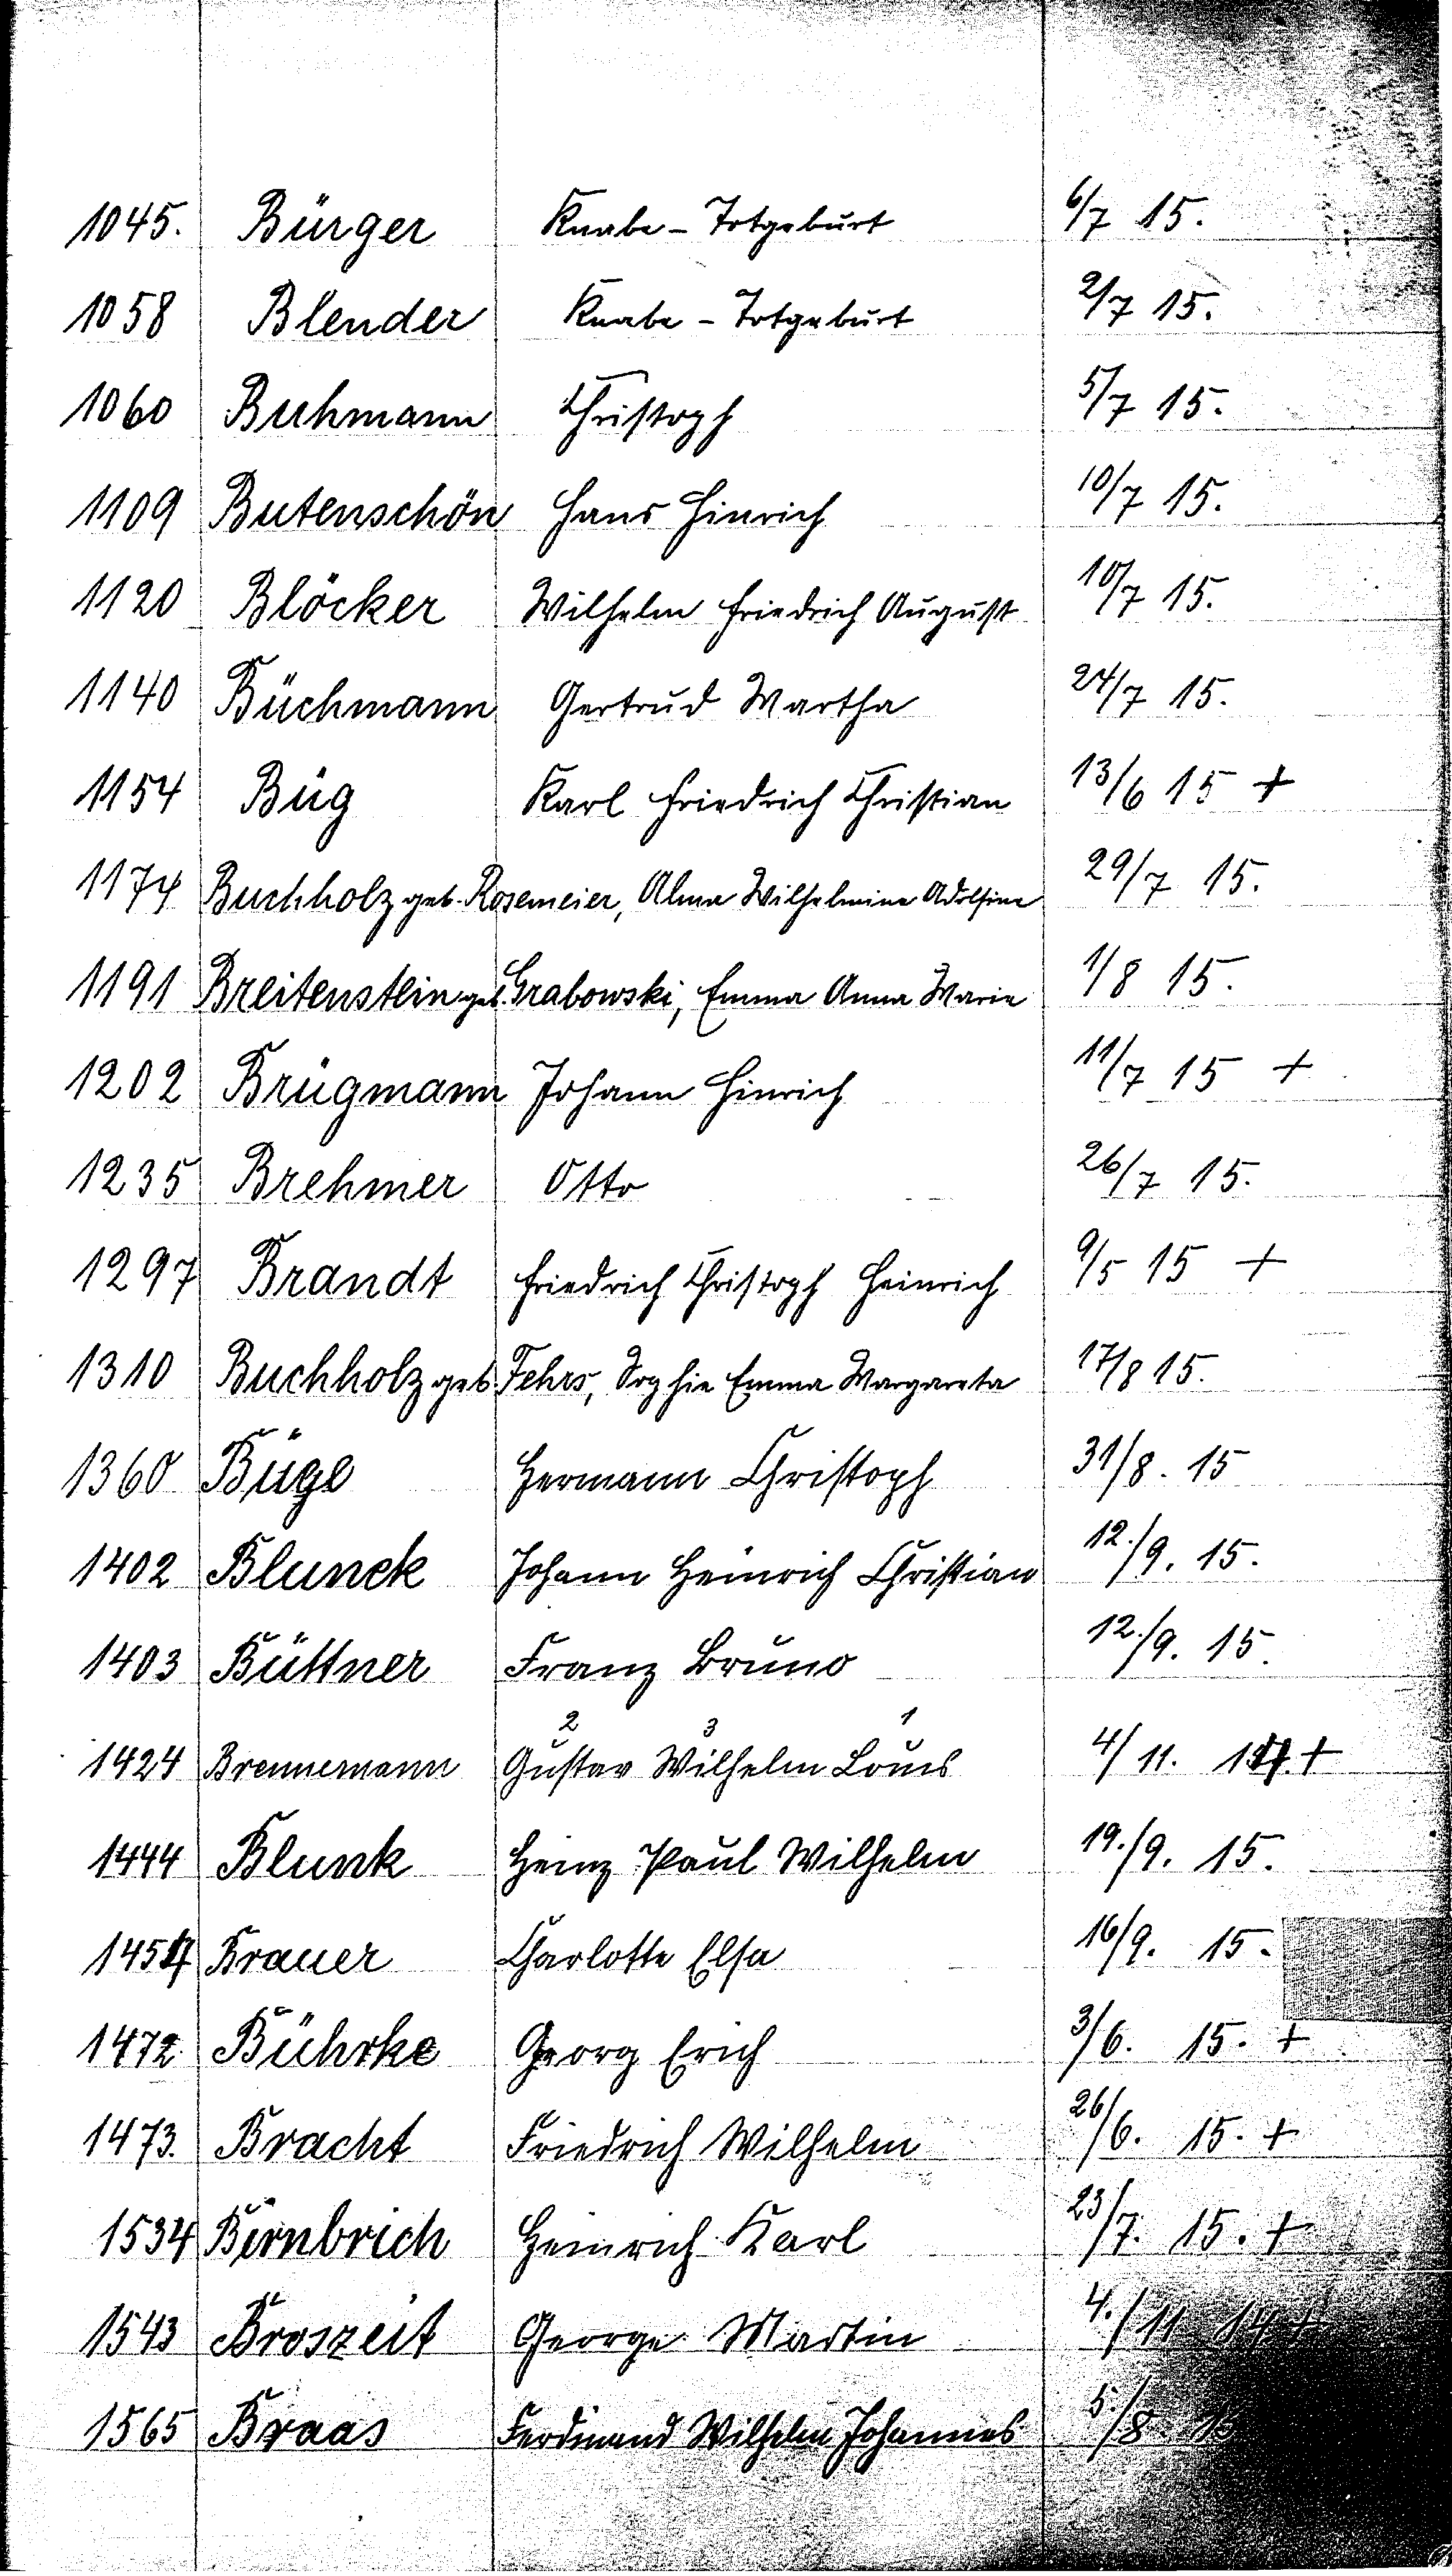 1045. Bürger Knabe - Totgeburt 6/7 15.
1058 Blender Knabe - Totgeburt 2/7 15.
1060 Buhmann Christoph 5/7 15.
1109 Butenschön Hans Hinrich 10/7 15.
1120 Blöcker Wilhelm Friedrich August 10/7 15.
1140 Büchmann Gertrud Martha 24/7 15.
1154 Büg Karl Friedrich Christian 13/6 15 +
1174 Buchholz geb. Rosemeier, Alma Wilhelmine Adolfine 29/7 15.
1191 Breitenstein geb. Grabowski, Emma Anna Marie 1/8 15.
1202 Brügmann Johann Hinrich 11/7 15 +
1235 Brehmer Otto 26/7 15.
1297 Brandt Friedrich Christoph Heinrich 9/5 15 +
1310 Buchholz geb. Fehrs, Sophie Emma Margareta 17/8 15.
1360 Büge Hermann Christoph 31/8. 15
1402 Blunck Johann Heinrich Christian 12./9. 15.
1403 Büttner Franz Bruno 12./9. 15.
2 3 1
1424 Brennemann Gustav Wilhelm Louis 4/11. 14. +
1444 Blunk Heinz Paul Wilhelm 19./9. 15.
Brauer Charlotte Elsa 16/9. 15.
1472 Bührke Georg Erich 3/6. 15. +
1473. Bracht Friedrich Wilhelm 26/6. 15. +
1534 Birnbrich Heinrich Karl 23/7. 15. +
1543 Broszeit George Martin 4./11 14 +
1565 Braas Ferdinand Wilhelm Johannes 5./8. 15